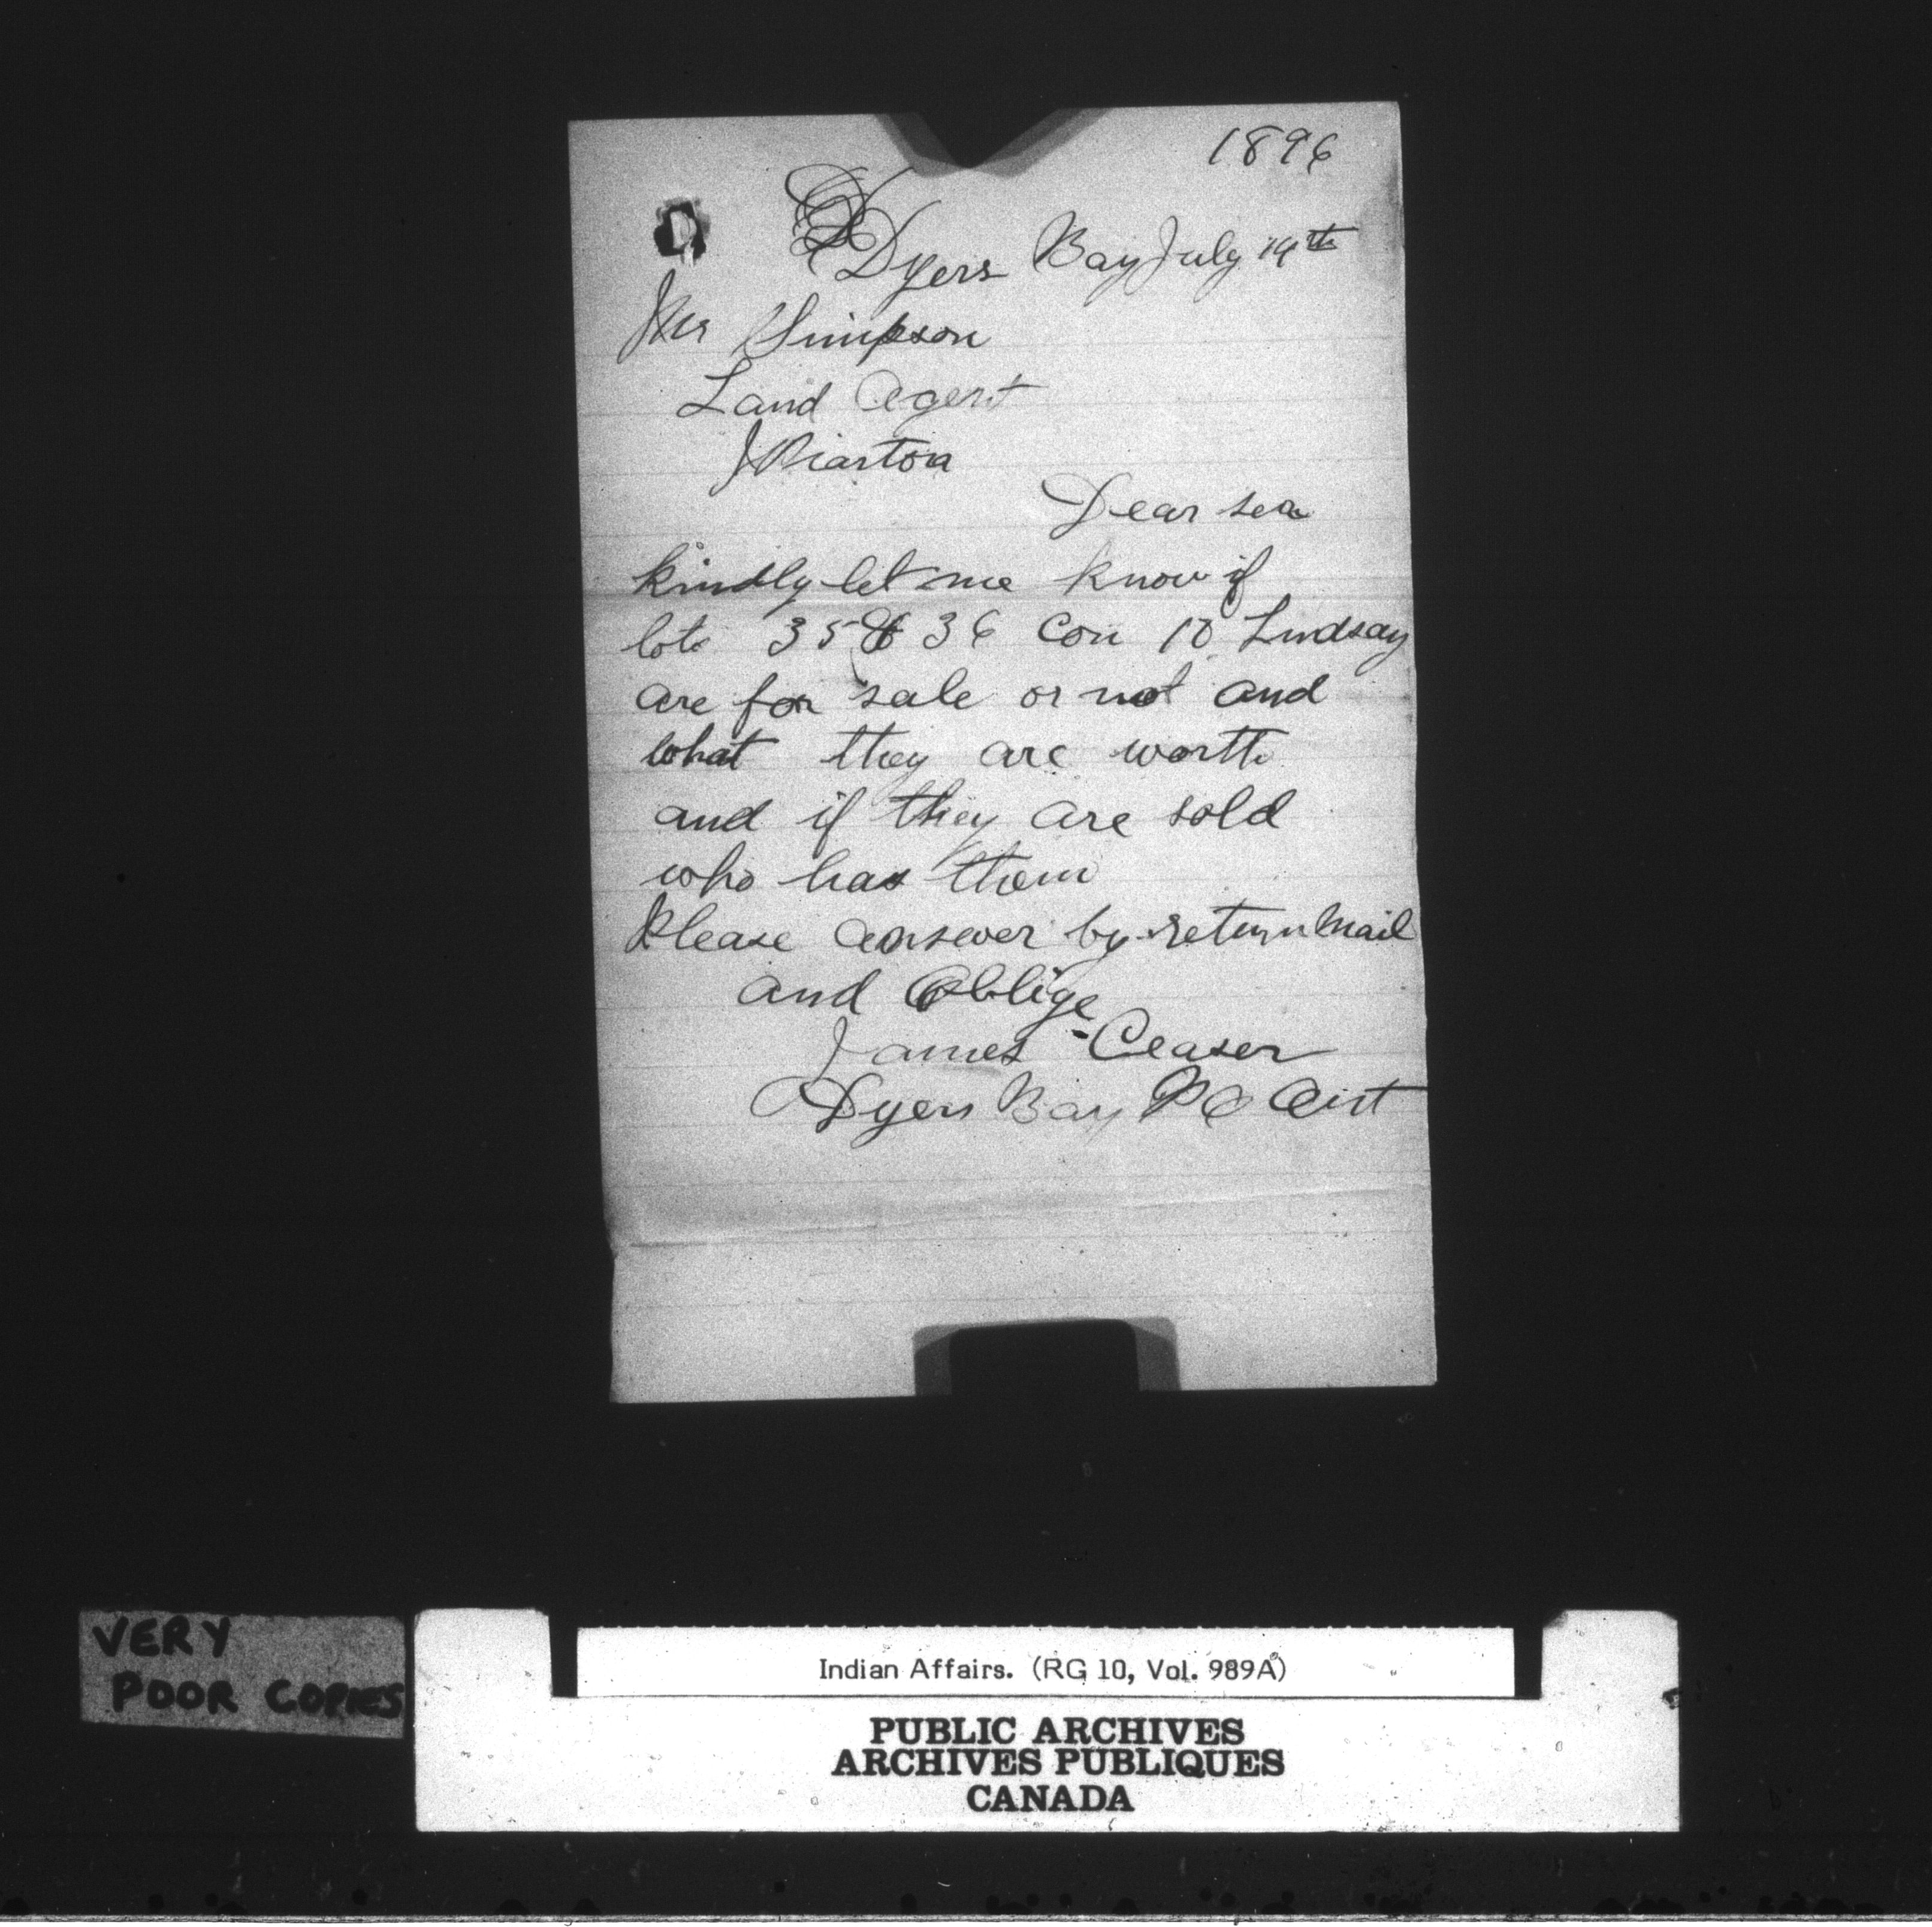 1896
Dyers Bay July 19th
Mr Simpson
Land Agent
Wiarton
Dear sir
kindly let me know if
lots 35 & 36 Con 10 Lindsay
are for sale or not and
what they are worth
and if they are sold
who has them
Please answer by return Mail
and Oblige
James Ceaser
Dyers Bay PO Ont
VERY
POOR COPIES
Indian Affairs. (RG 10, Vol. 989A)
PUBLIC ARCHIVES
ARCHIVES PUBLIQUES
CANADA